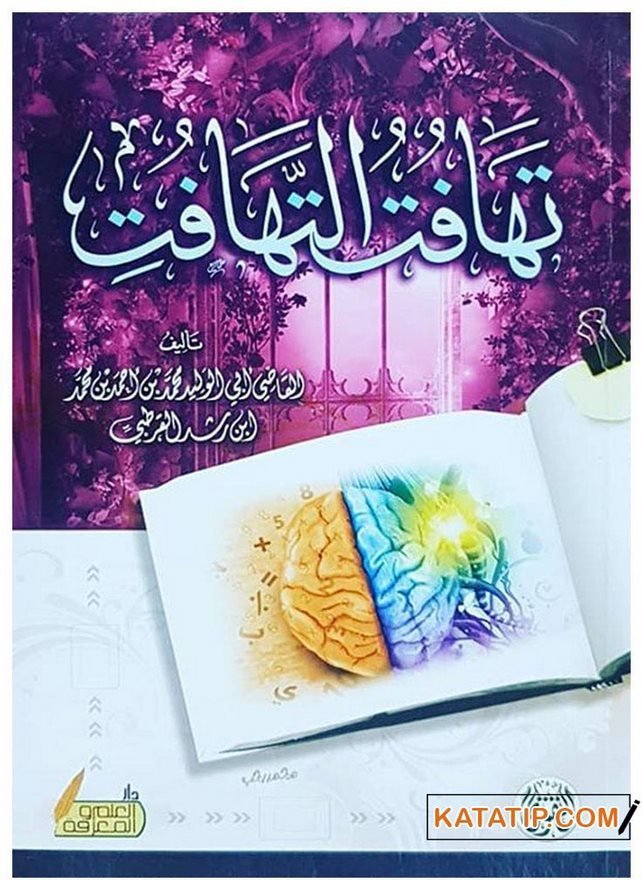 تَهَافُتُ التَّهَافُتِ
تَأليفُ
القاضي أبي الوليد محمَّد بن أحمد بن محمَّد
ابن رشد القرطبيّ
8
5
+
=
%
ب
ي
دار
العلم و
المعرفة
KATATIP.COM